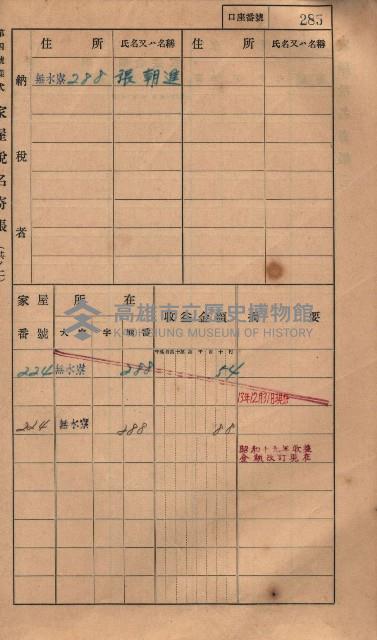 口座番號 285
第四號樣式 家屋稅名寄帳(共ノ二)
納稅者
住所 氏名又ハ名稱 住所 氏名又ハ名稱
無水寮288 張朝進
家屋番號 所在 收益金額 摘要
大字 字 地番
高雄市立歷史博物館
KAOHSIUNG MUSEUM OF HISTORY
224 無水寮 288 54
13年12月31日現在
224 無水寮 288 88
昭和十九年收益
金額改訂現在